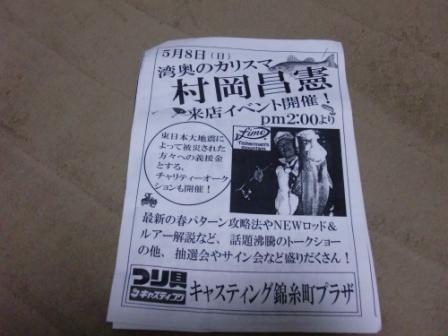 5月8日（日）
湾奥のカリスマ
村岡昌憲
来店イベント開催！
pm2:00より
東日本大地震に
よって被災された
方々への義援金
とする、
チャリティーオーク
ションも開催！
Lime
最新の春パターン攻略法やNEWロッド＆
ルアー解説など、話題沸騰のトークショー
の他、抽選会やサイン会など盛りだくさん！
つり具
キャスティング
キャスティング錦糸町プラザ